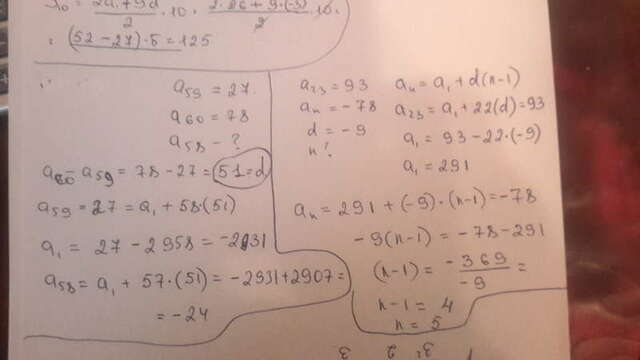 S₁₀ = (2a₁ + 9d)/2 · 10 = (2·26 + 9·(-3))/2 · 10 =
= (52 - 27) · 5 = 125
a₅₉ = 27
a₆₀ = 78
a₅₈ - ?
a₆₀ - a₅₉ = 78 - 27 = 51 = d
a₅₉ = 27 = a₁ + 58(51)
a₁ = 27 - 2958 = -2931
a₅₈ = a₁ + 57·(51) = -2931 + 2907 =
= -24
a₂₃ = 93
aₙ = -78
d = -9
n ?
aₙ = a₁ + d(n-1)
a₂₃ = a₁ + 22(d) = 93
a₁ = 93 - 22·(-9)
a₁ = 291
aₙ = 291 + (-9)·(n-1) = -78
-9(n-1) = -78 - 291
(n-1) = -369/-9 =
n-1 = 4
n = 5